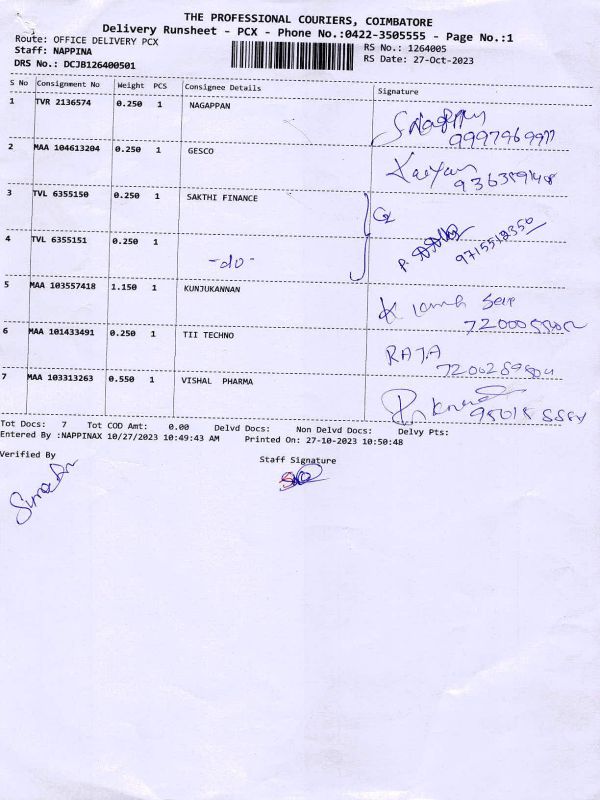 THE PROFESSIONAL COURIERS, COIMBATORE
Delivery Runsheet - PCX - Phone No.:0422-3505555 - Page No.:1
Route: OFFICE DELIVERY PCX
RS No.: 1264005
Staff: NAPPINA
RS Date: 27-Oct-2023
DRS No.: DCJB126400501
S No Consignment No Weight PCS Consignee Details Signature
1 TVR 2136574 0.250 1 NAGAPPAN
2 MAA 104613204 0.250 1 GESCO
3 TVL 6355150 0.250 1 SAKTHI FINANCE
4 TVL 6355151 0.250 1 -do-
9715518350
5 MAA 103557418 1.150 1 KUNJUKANNAN
6 MAA 101433491 0.250 1 TII TECHNO RAJA
7 MAA 103313263 0.550 1 VISHAL PHARMA
Tot Docs: 7 Tot COD Amt: 0.00 Delvd Docs: Non Delvd Docs: Delvy Pts:
Entered By :NAPPINAX 10/27/2023 10:49:43 AM Printed On: 27-10-2023 10:50:48
Verified By Staff Signature